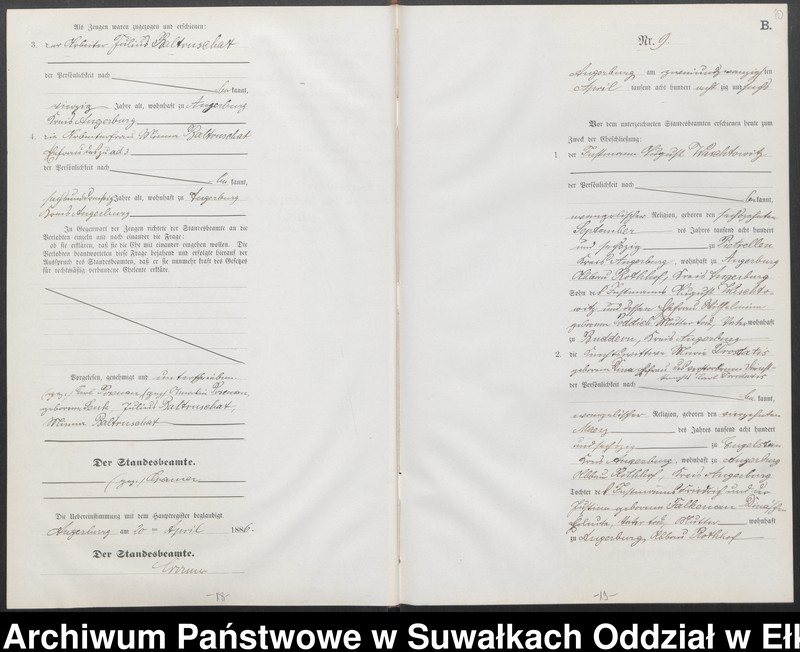 Als Zeugen waren zugezogen und erschienen:
3. der Arbeiter Julius Baltruschat
der Persönlichkeit nach
be kannt,
vierzig Jahre alt, wohnhaft zu Angerburg
Kreis Angerburg
4. die Arbeiterfrau Minna Baltruschat
Ehefrau des zu ad 3
der Persönlichkeit nach
be kannt,
sechsunddreißig Jahre alt, wohnhaft zu Angerburg
Kreis Angerburg
In Gegenwart der Zeugen richtete der Standesbeamte an die
Verlobten einzeln und nach einander die Frage:
ob sie erklären, daß sie die Ehe mit einander eingehen wollen. Die
Verlobten beantworteten diese Frage bejahend und erfolgte hierauf der
Ausspruch des Standesbeamten, daß er sie nunmehr kraft des Gesetzes
für rechtmäßig verbundene Eheleute erkläre.
Vorgelesen, genehmigt und unterschrieben
(gez.) Carl (gez.)
geborene Julius Baltruschat,
Minna Baltruschat
Der Standesbeamte.
(gez.) Cramer
Die Uebereinstimmung mit dem Hauptregister beglaubigt.
Angerburg am 20ten April 1886.
Der Standesbeamte.
Cramer
-18-
10
B.
Nr. 9.
Angerburg am zweiundzwanzigsten
April tausend acht hundert achtzig und sechs
Vor dem unterzeichneten Standesbeamten erschienen heute zum
Zweck der Eheschließung:
1. der Instmann August
der Persönlichkeit nach
be kannt,
evangelischer Religion, geboren den sechszehnten
September des Jahres tausend acht hundert
und sechszig zu Pietrellen
Kreis Angerburg, wohnhaft zu Angerburg
Abbau Rothhof, Kreis Angerburg
Sohn des Instmanns August
und dessen Ehefrau Wilhelmine
geborene Mutter tot, Vater wohnhaft
zu Buddern, Kreis Angerburg
2. die Knechtswittwe Marie
geborene Dina, Ehefrau des verstorbenen
Carl
der Persönlichkeit nach
be kannt,
evangelischer Religion, geboren den vierzehnten
März des Jahres tausend acht hundert
und sechszig zu Engelstein
Kreis Angerburg, wohnhaft zu Angerburg
Abbau Rothhof, Kreis Angerburg
Tochter des Instmanns Friedrich und der
Justine geborenen Falkowski
Eheleute, Vater tot, Mutter wohnhaft
zu Angerburg, Abbau Rothhof
-19-
Archiwum Państwowe w Suwałkach Oddział w Ełk